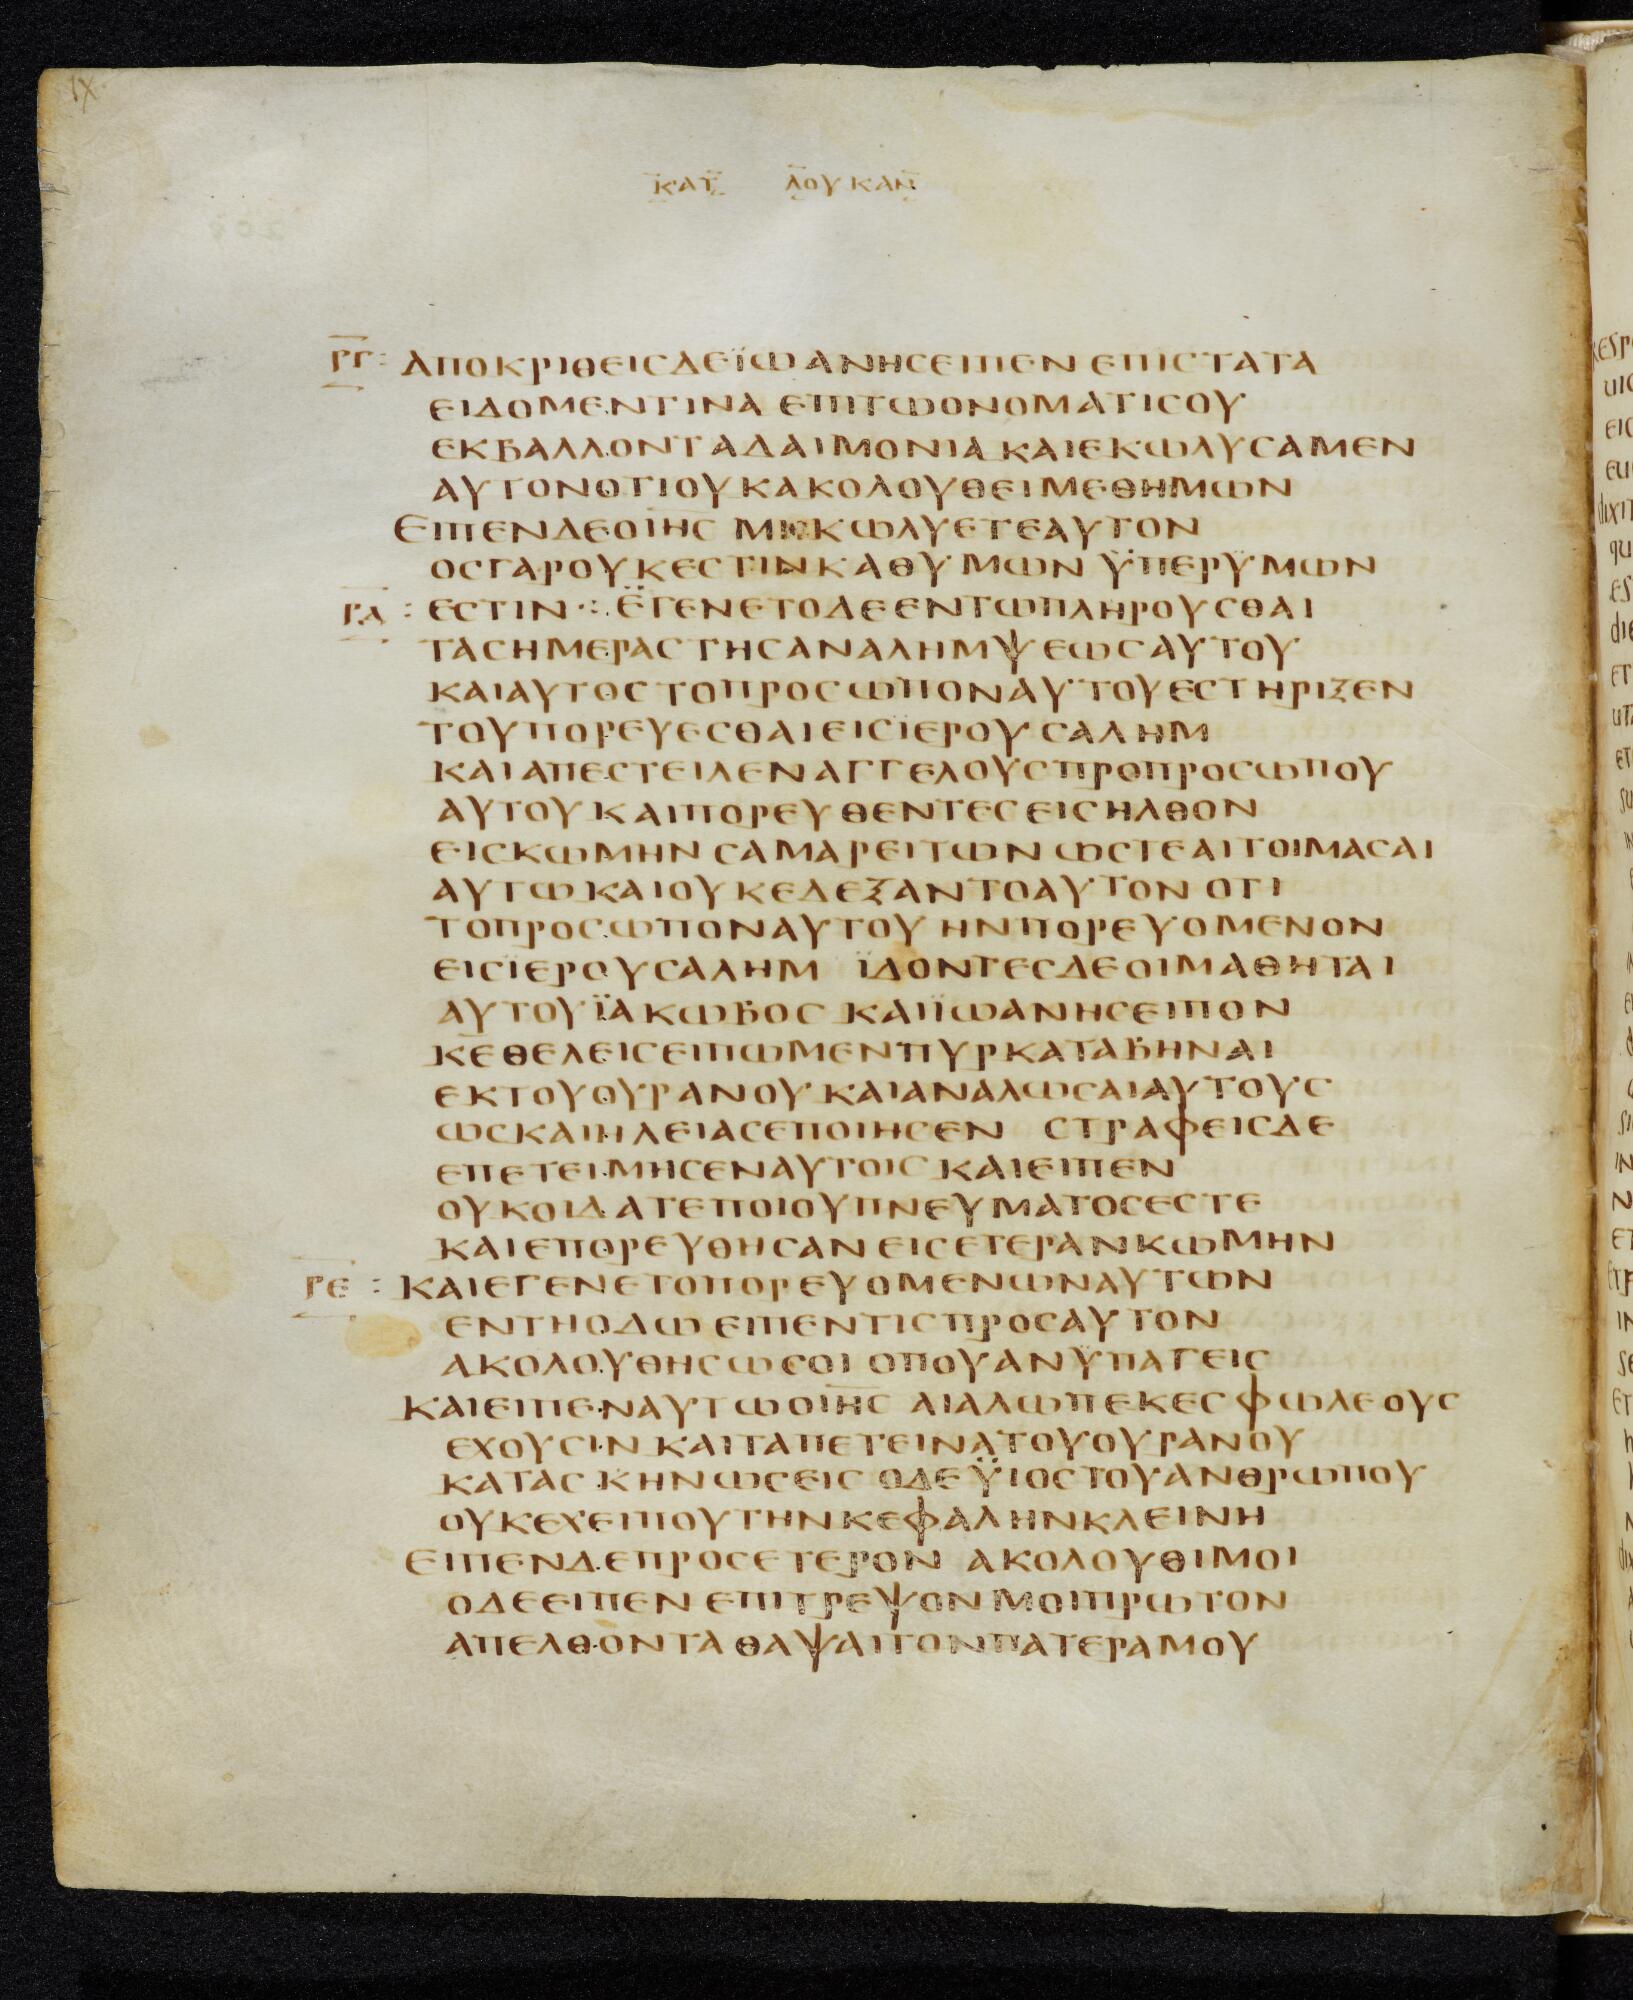 ΙΧ
ΚΑΤ ΛΟΥΚΑΝ
ΡΓ ΑΠΟΚΡΙΘΕΙСΔΕΪωΑΝΗСΕΙΠΕΝ ΕΠΙСΤΑΤΑ
ΕΙΔΟΜΕΝΤΙΝΑ ΕΠΙΤωΟΝΟΜΑΤΙСΟΥ
ΕΚΒΑΛΛΟΝΤΑΔΑΙΜΟΝΙΑ ΚΑΙΕΚωΛΥСΑΜΕΝ
ΑΥΤΟΝΟΤΙΟΥΚΑΚΟΛΟΥΘΕΙΜΕΘΗΜωΝ
ΕΙΠΕΝΔΕΟΙΗС ΜΗΚωΛΥΕΤΕΑΥΤΟΝ
ΟСΓΑΡΟΥΚΕСΤΙΝΚΑΘΥΜωΝ ΫΠΕΡΥΜωΝ
ΡΔ ΕСΤΙΝ·: ΕΓΕΝΕΤΟΔΕΕΝΤωΠΛΗΡΟΥСΘΑΙ
ΤΑСΗΜΕΡΑСΤΗСΑΝΑΛΗΜΨΕωСΑΥΤΟΥ
ΚΑΙΑΥΤΟСΤΟΠΡΟСωΠΟΝΑΥΤΟΥΕСΤΗΡΙΖΕΝ
ΤΟΥΠΟΡΕΥΕСΘΑΙΕΙСΪΕΡΟΥСΑΛΗΜ
ΚΑΙΑΠΕСΤΕΙΛΕΝΑΓΓΕΛΟΥСΠΡΟΠΡΟСωΠΟΥ
ΑΥΤΟΥΚΑΙΠΟΡΕΥΘΕΝΤΕСΕΙСΗΛΘΟΝ
ΕΙСΚωΜΗΝ СΑΜΑΡΕΙΤωΝ ωСΤΕΑΙΤΟΙΜΑСΑΙ
ΑΥΤωΚΑΙΟΥΚΕΔΕΞΑΝΤΟΑΥΤΟΝ ΟΤΙ
ΤΟΠΡΟСωΠΟΝΑΥΤΟΥ ΗΝΠΟΡΕΥΟΜΕΝΟΝ
ΕΙСΪΕΡΟΥСΑΛΗΜ ΪΔΟΝΤΕСΔΕΟΙΜΑΘΗΤΑΙ
ΑΥΤΟΥΪΑΚωΒΟС ΚΑΙΪωΑΝΗСΕΙΠΟΝ
ΚΕΘΕΛΕΙСΕΙΠωΜΕΝΠΥΡΚΑΤΑΒΗΝΑΙ
ΕΚΤΟΥΟΥΡΑΝΟΥ ΚΑΙΑΝΑΛωСΑΙΑΥΤΟΥС
ωСΚΑΙΗΛΕΙΑСΕΠΟΙΗСΕΝ СΤΡΑΦΕΙСΔΕ
ΕΠΕΤΕΙΜΗСΕΝΑΥΤΟΙС ΚΑΙΕΙΠΕΝ
ΟΥΚΟΙΔΑΤΕΠΟΙΟΥΠΝΕΥΜΑΤΟСΕСΤΕ
ΚΑΙΕΠΟΡΕΥΘΗСΑΝ ΕΙСΕΤΕΡΑΝΚωΜΗΝ
ΡΕ ΚΑΙΕΓΕΝΕΤΟΠΟΡΕΥΟΜΕΝωΝΑΥΤωΝ
ΕΝΤΗΟΔω ΕΙΠΕΝΤΙСΠΡΟСΑΥΤΟΝ
ΑΚΟΛΟΥΘΗСωСΟΙ ΟΠΟΥΑΝΫΠΑΓΕΙС
ΚΑΙΕΙΠΕΝΑΥΤωΟΙΗС ΑΙΑΛωΠΕΚΕСΦωΛΕΟΥС
ΕΧΟΥСΙΝ ΚΑΙΤΑΠΕΤΕΙΝΑΤΟΥΟΥΡΑΝΟΥ
ΚΑΤΑСΚΗΝωСΕΙС ΟΔΕΫΙΟСΤΟΥΑΝΘΡωΠΟΥ
ΟΥΚΕΧΕΙΠΟΥΤΗΝΚΕΦΑΛΗΝΚΛΕΙΝΗ
ΕΙΠΕΝΔΕΠΡΟСΕΤΕΡΟΝ ΑΚΟΛΟΥΘΙΜΟΙ
ΟΔΕΕΙΠΕΝ ΕΠΙΤΡΕΨΟΝΜΟΙΠΡωΤΟΝ
ΑΠΕΛΘΟΝΤΑΘΑΨΑΙΤΟΝΠΑΤΕΡΑΜΟΥ